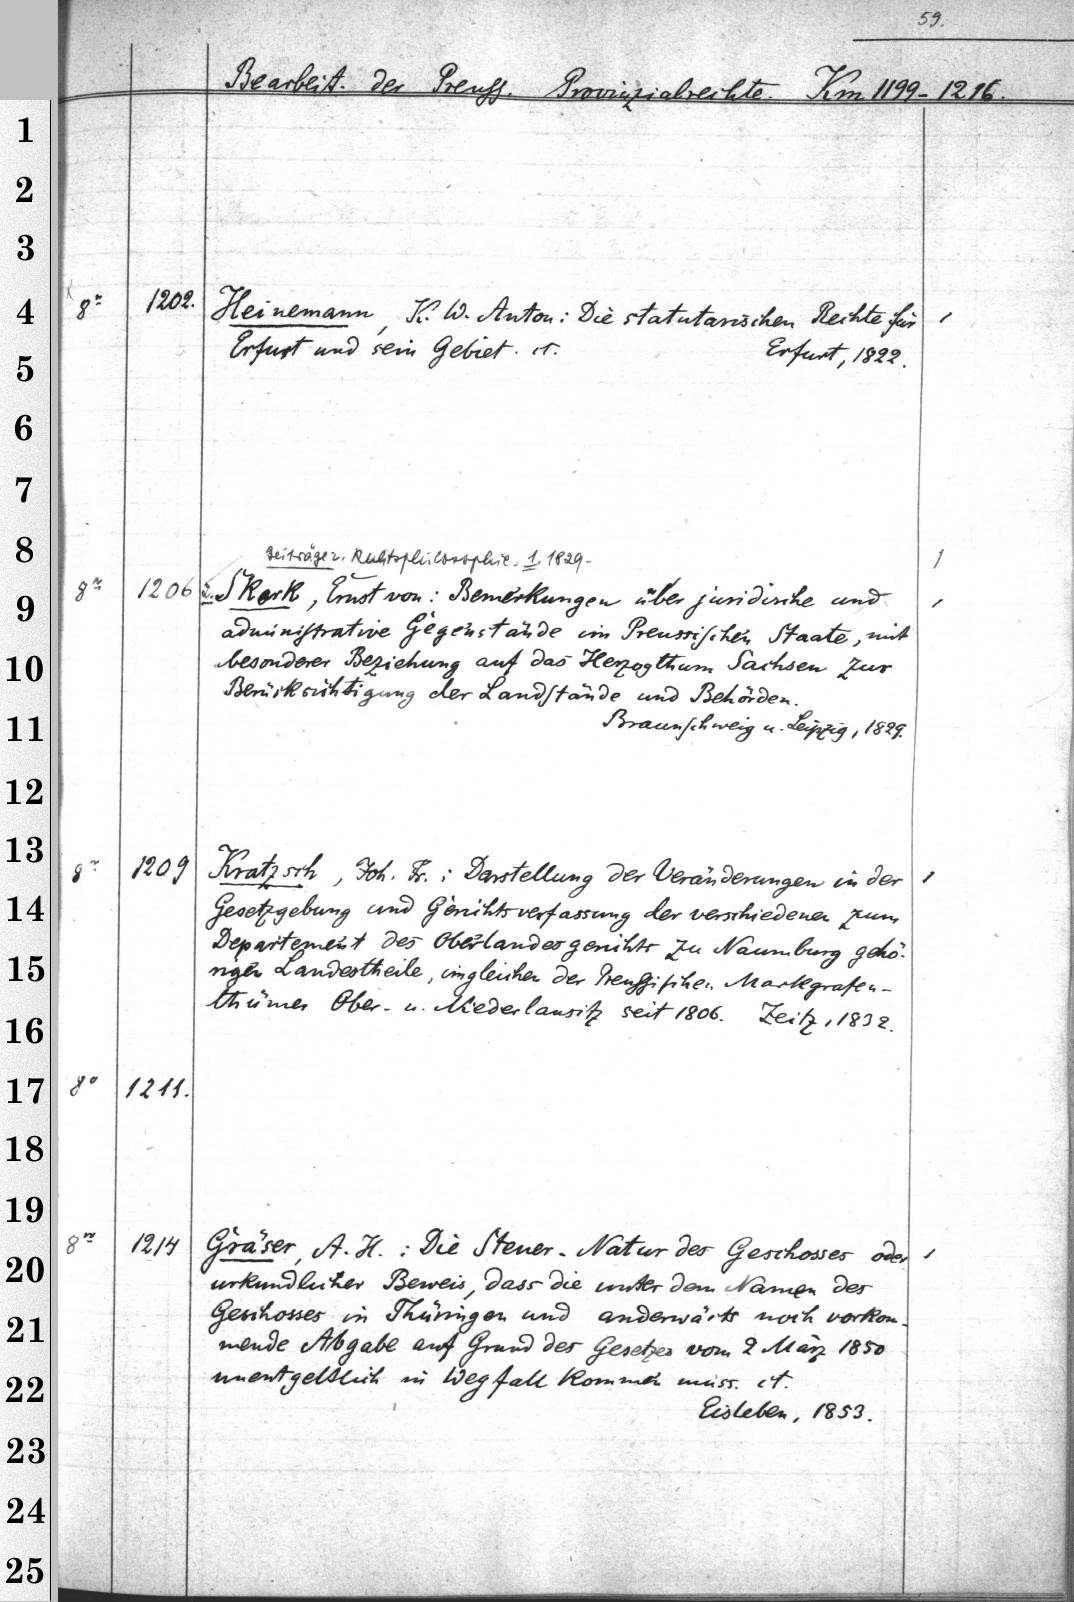 59.
Bearbeit. der Preuss. Provinzialrechte. Km 1199-1216.
1
2
3
4
8° 1202. Heinemann, K. W. Anton: Die statutarischen Rechte für
Erfurt und sein Gebiet. et. Erfurt, 1822.
5
6
7
8
Beiträge z. Rechtsphilosophie. 1. 1829.
9
8° 1206 Skork, Ernst von: Bemerkungen über juridische und
administrative Gegenstände im Preussischen Staate, mit
10
besonderer Beziehung auf das Herzogthum Sachsen zur
Berücksichtigung der Landstände und Behörden.
11
Braunschweig u. Leipzig, 1829.
12
13
8° 1209 Kratzsch, Joh. Fr.: Darstellung der Veränderungen in der
14
Gesetzgebung und Gerichtsverfassung der verschiedenen zum
Departement des Oberlandesgerichts zu Naumburg gehö-
15
rigen Landestheile, ingleichen der Preussischen Markgrafen-
thümer Ober- u. Niederlausitz seit 1806. Zeitz, 1832.
16
17
8° 1211.
18
19
8° 1214 Gräser, A. H.: Die Steuer-Natur des Geschosses oder
20
urkundlicher Beweis, dass die unter dem Namen des
Geschosses in Thüringen und anderwärts noch vorkom-
21
mende Abgabe auf Grund des Gesetzes vom 2 März 1850
22
unentgeltlich in Wegfall kommen muss. et.
Eisleben, 1853.
23
24
25